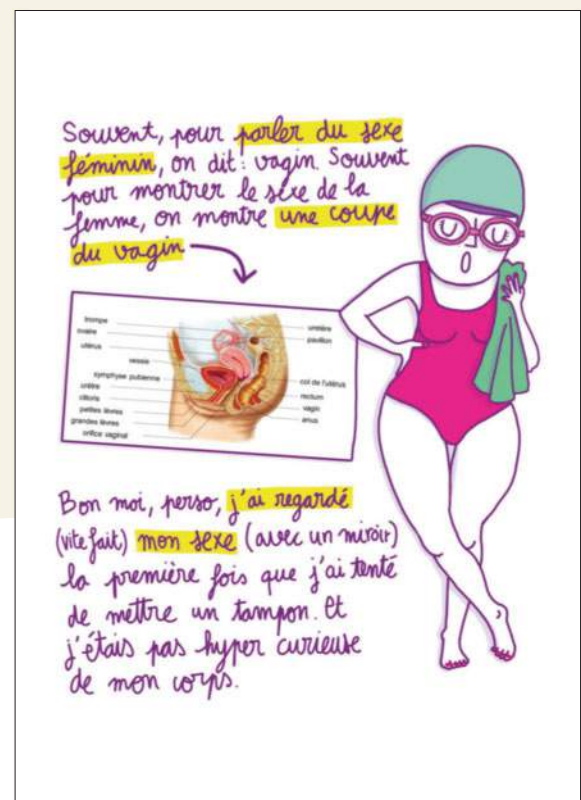 Souvent, pour parler du sexe
féminin, on dit : vagin. Souvent
pour montrer le sexe de la
femme, on montre une coupe
du vagin
trompe
ovaire
utérus
vessie
symphyse pubienne
urètre
clitoris
petites lèvres
grandes lèvres
orifice vaginal
uretère
pavillon
col de l'utérus
rectum
vagin
anus
Bon moi, perso, j'ai regardé
(vite fait) mon sexe (avec un miroir)
la première fois que j'ai tenté
de mettre un tampon. Et
j'étais pas hyper curieuse
de mon corps.